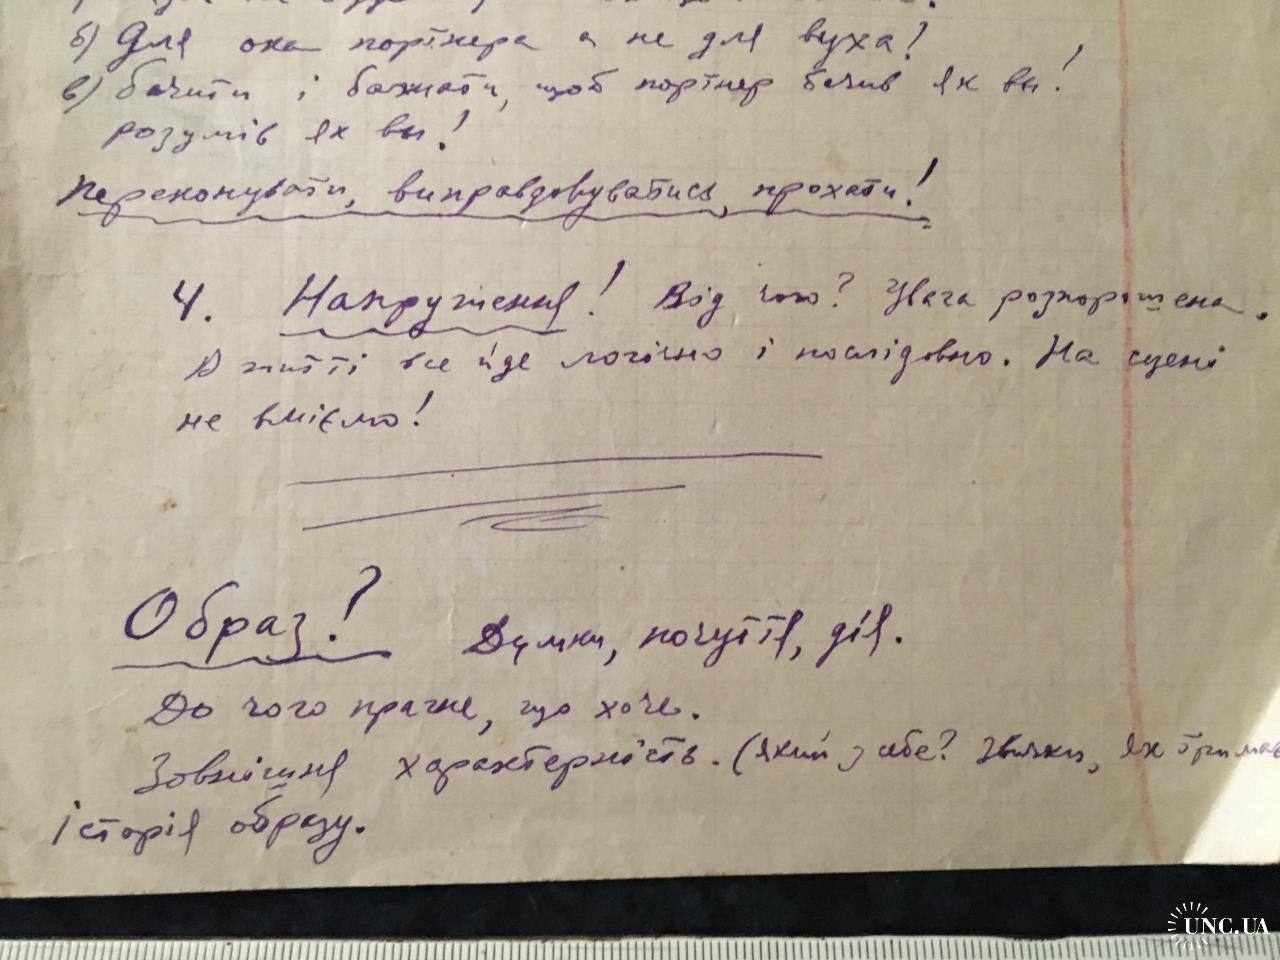 б) Для ока портнера а не для вуха!
в) бачити і бажати, щоб портнер бачив як вы!
розумів як вы!
Переконувати, виправдовуватись, прохати!
4. Напруження! Від чого? Увага розпорошена.
В житті все йде логічно і послідовно. На сцені
не вміємо!
Образ? Думки, почуття, дія.
До чого прагне, що хоче.
Зовнішня характерність. (який з себе? Звички, як тримає
історія образу.
UNC.UA